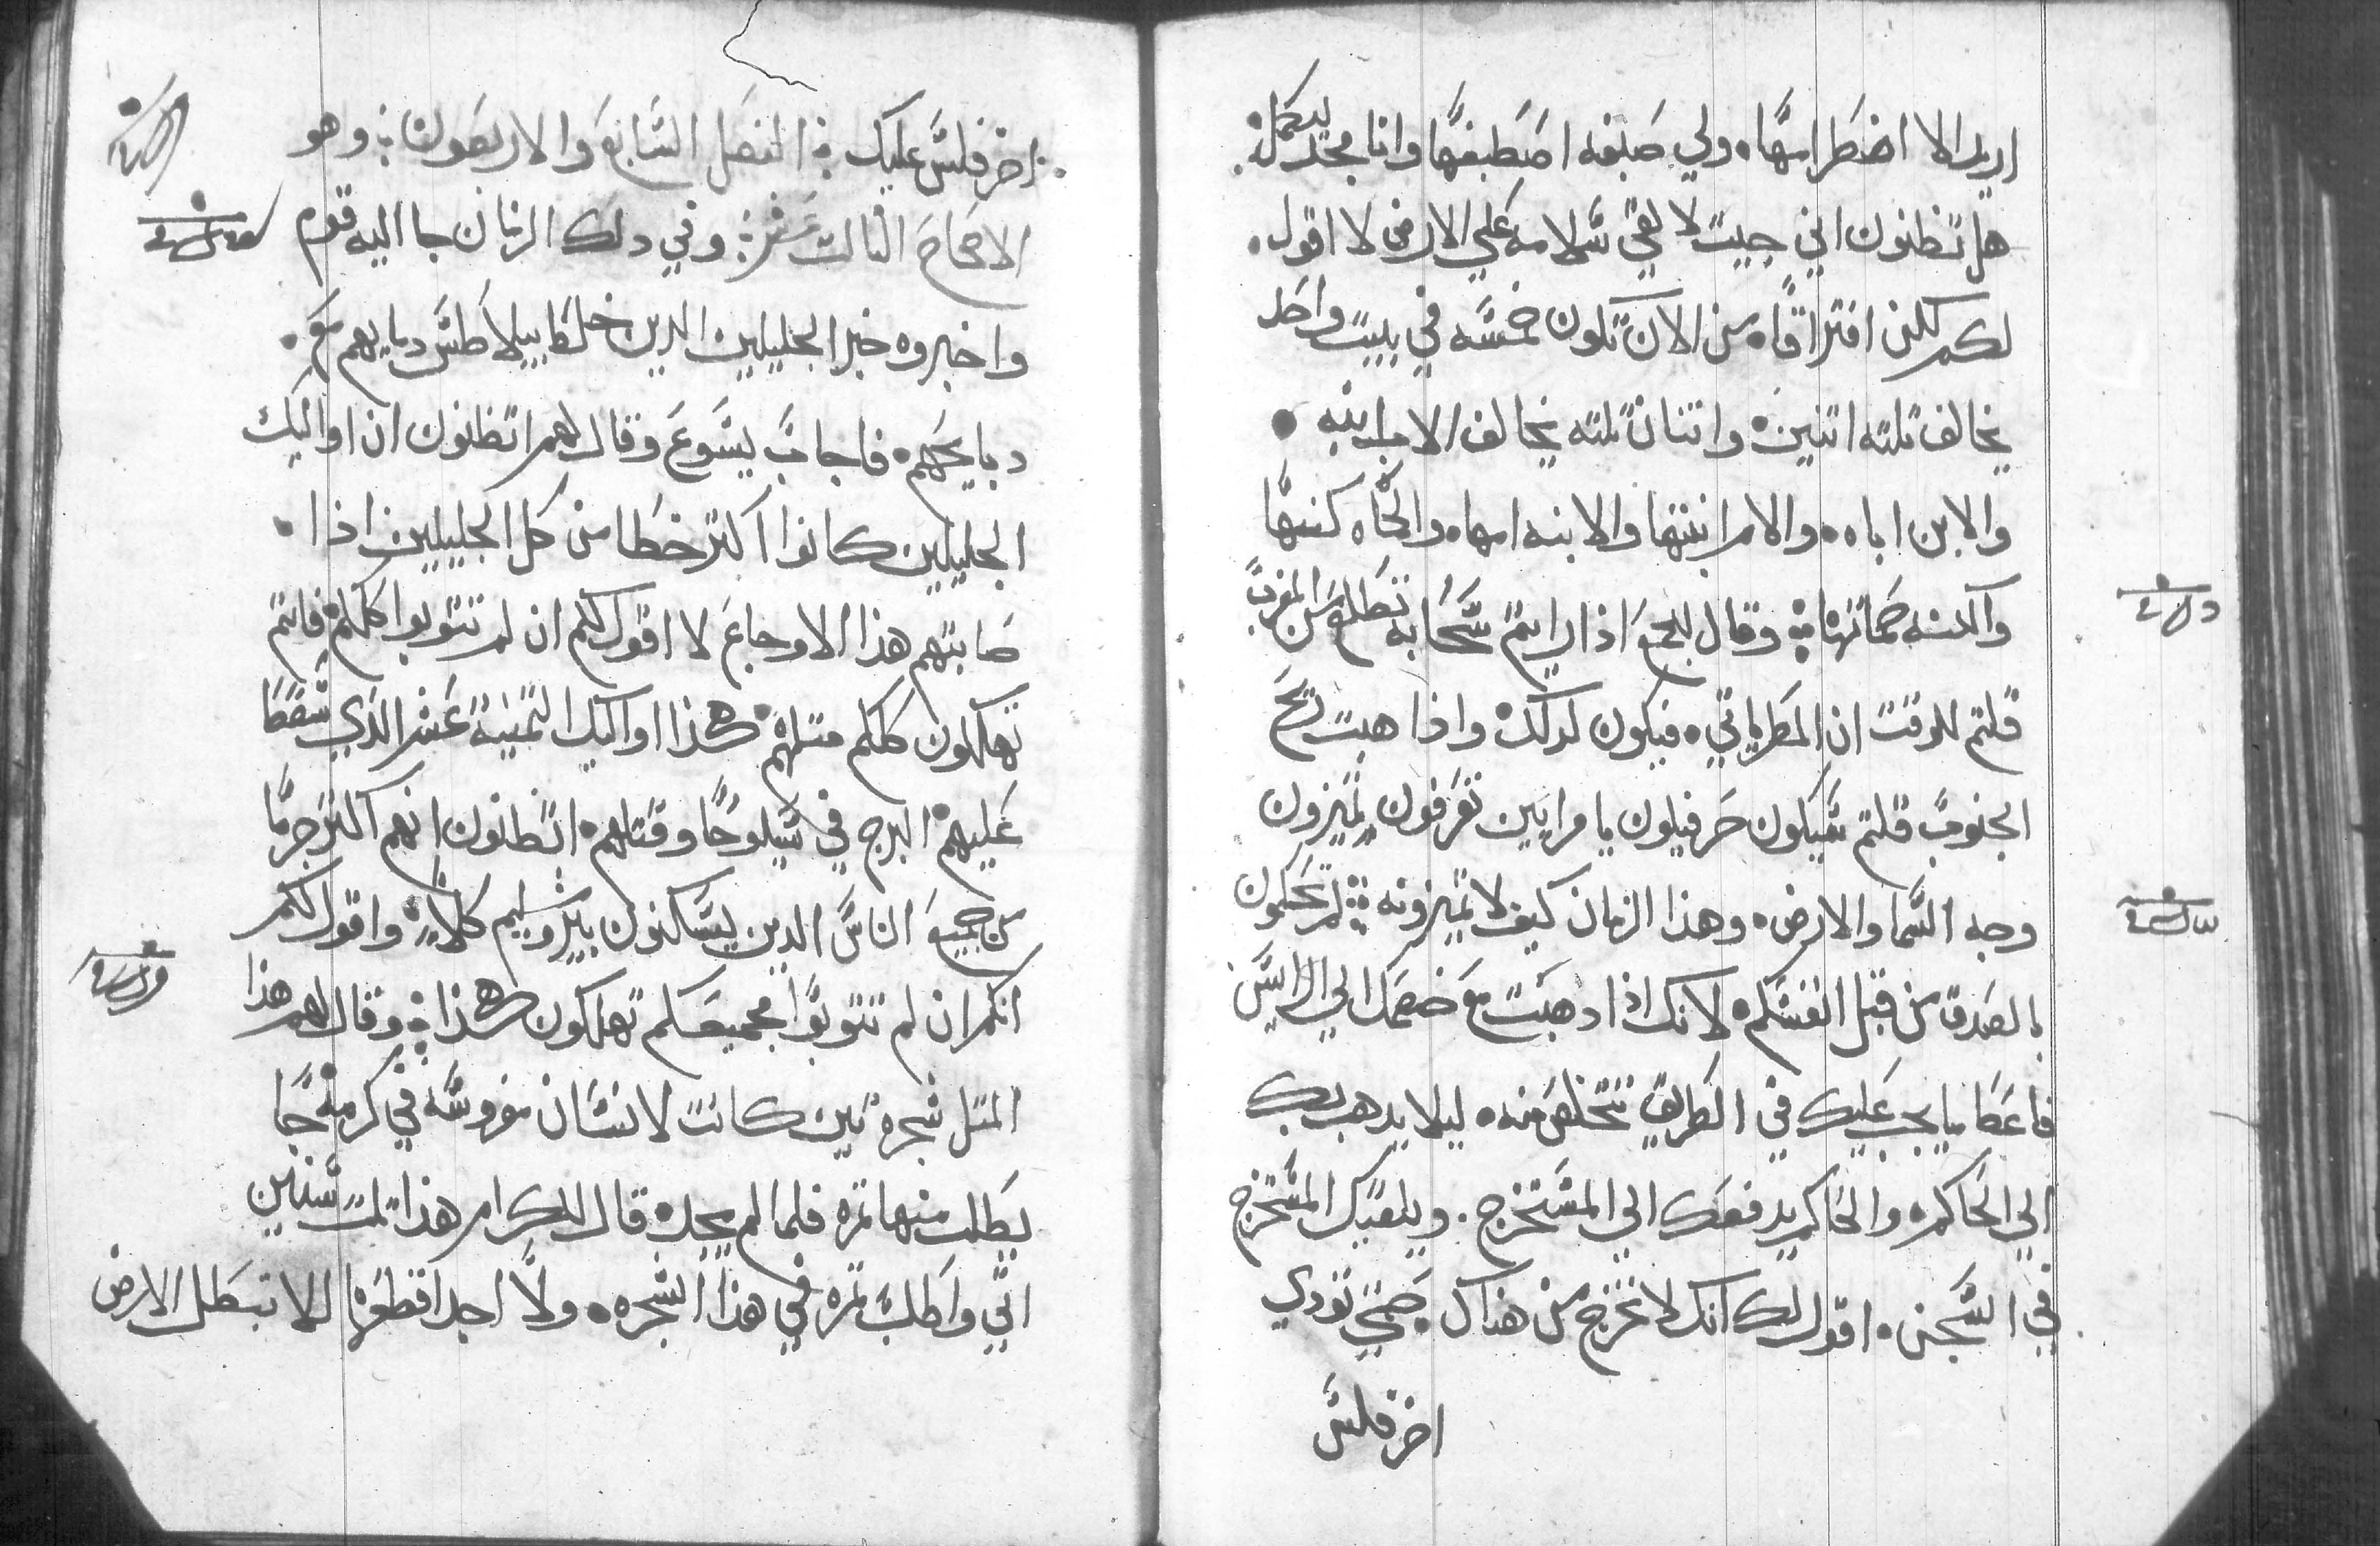 اريد الا اضطرامها. ولي صبغه اصطبغها وانا مجد ليكمل.
هل تظنون اني جيت لالقي سلامه علي الارض لا اقول.
لكم لكن افتراقا. من الان تكون خمسه في بيت واحد
يخالف تلته اتنين. واتنان تلته يخالف الاب ابنه.
والابن اباه. والام ابنتها والابنه امها. والحماه كنتها
والكنه حماتها. وقال للجمع اذا رايتم سحابه تطلع من المغرب
قلتم للوقت ان المطر ياتي. فيكون كدلك. واذا هبت ريح
الجنوب قلتم سيكون حر فيكون يا مرايين تعرفون تميزون
وجه السما والارض. وهذا الزمان كيف لا تميزونه. لم تحكمون
بالصدق من قبل انفسكم. لانك اذا دهبت مع خصمك الي الرايس
فاعطا ما يجب عليك في الطريق تتخلص منه. ليلا يدهب بك
الي الحاكم. والحاكم يدفعك الي المستخرج. ويلقيك المستخرج
في السجن. اقول لك انك لا تخرج من هناك. حتي تودي
اخر فلس
اخر فلس عليك. الفصل السابع والاربعون. وهو
الاصحاح التالت عشر. وفي دلك الزمان جا اليه قوم
واخبروه خبر الجليليين الدين خلط بيلاطس دمايهم مع.
دبايحهم. فاجاب يسوع وقال لهم اتظنون ان اوليك
الجليليين كانوا اكتر خطا من كل الجليليين اذا.
صابتهم هذا الاوجاع لا اقول لكم ان لم تتوبوا كلكم فانتم
تهلكون كلكم متلهم. هكذا اوليك التمنية عشر الذي سقط
عليهم البرج في سيلوحا وقتلهم. اتظنون انهم اكتر جرما
من جميع الناس الدين يسكنون بيروشليم كلا. واقول لكم
انكم ان لم تتوبوا فجميعكم تهلكون هكذا. وقال لهم هذا
المتل شجره تين كانت لانسان مغروسه في كرمة جا
يطلب منها تمره فلما لم يجد. قال للكرام هذا تلت سنين
اتي واطلب تمره في هذا الشجره. ولا اجد اقطعها لالا تبطل الارض